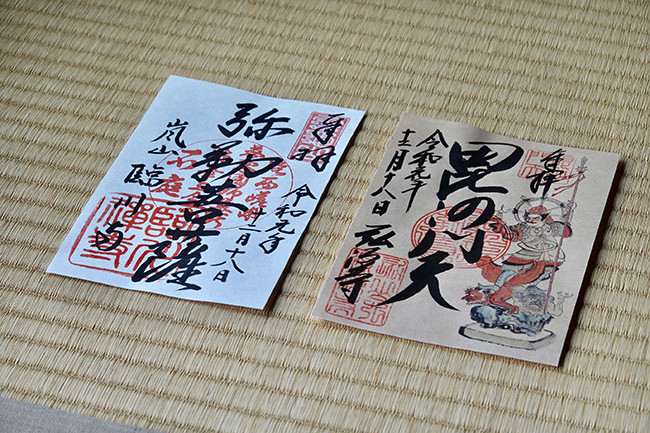 奉拝
令和元年
十二月十八日
弥勒菩薩
石庭
嵐山 臨川寺
奉拝
毘沙門天
令和元年
十二月十八日
弘源寺